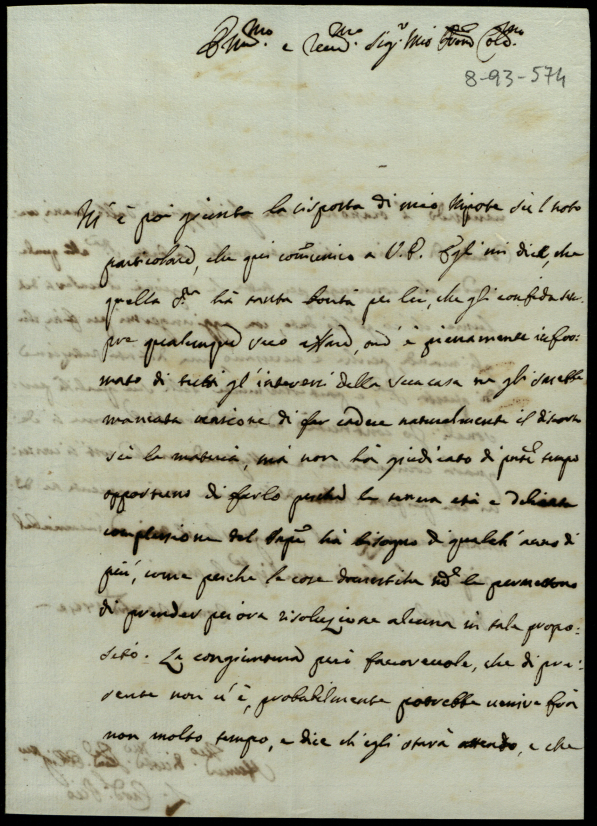 Ill.mo e Rev.mo Sig.r Mio P.ron Col.mo
8-93-574
M'è poi giunta la risposta di mio Nipote su'l noto
particolare, che qui com.unico a V.P. Egli mi dice, che
quella S.ra hà tanta bontà per lei, che gli confida sem=
pre qualunque suo affare, ond'è pienamente infor=
mato di tutti gl'interessi della sua casa ne gli sarebbe
mancata occasione di far cadere naturalmente il discorso
sù la materia, mà non hà giudicato di p.nte tempo
opportuno di farlo perche la tenera età e delicata
complessione del hà bisogno di qualch'anno di
più, come perche le cose domestiche le permettono
di prender per ora risoluzione alcuna in tale propo=
sito. La congiuntura però favorevole, che di pre=
sente non v'è, probabilmente potrebbe venire frà
non molto tempo, e dice ch'egli starà attento, e che